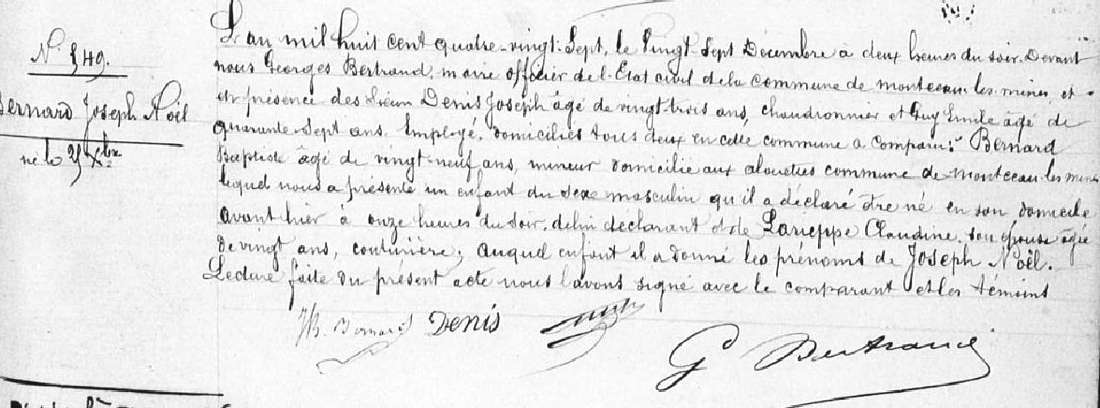 N° 549.
Bernard Joseph Noël
né le 25 Xbre
L'an mil huit cent quatre-vingt-sept, le vingt-sept Décembre à deux heures du soir. Devant
nous Georges Bertrand, maire officier de l'Etat civil de la commune de montceau les mines, et
en présence des Sieurs Denis Joseph âgé de vingt-trois ans, chaudronnier et Guy Emile âgé de
quarante-sept ans. Employé, domiciliés tous deux en cette commune a comparu: Bernard
Baptiste âgé de vingt-neuf ans, mineur domicilié aux alouettes commune de montceau-les-mines
lequel nous a présenté un enfant du sexe masculin qu'il a déclaré être né en son domicile
avant hier à onze heures du soir, de lui déclarant et de Larieppe Claudine, son épouse âgée
de vingt ans, couturière; auquel enfant il a donné les prénoms de Joseph Noël.
Lecture faite du présent acte nous l'avons signé avec le comparant et les témoins
JB. Bernard Denis
G Bertrand